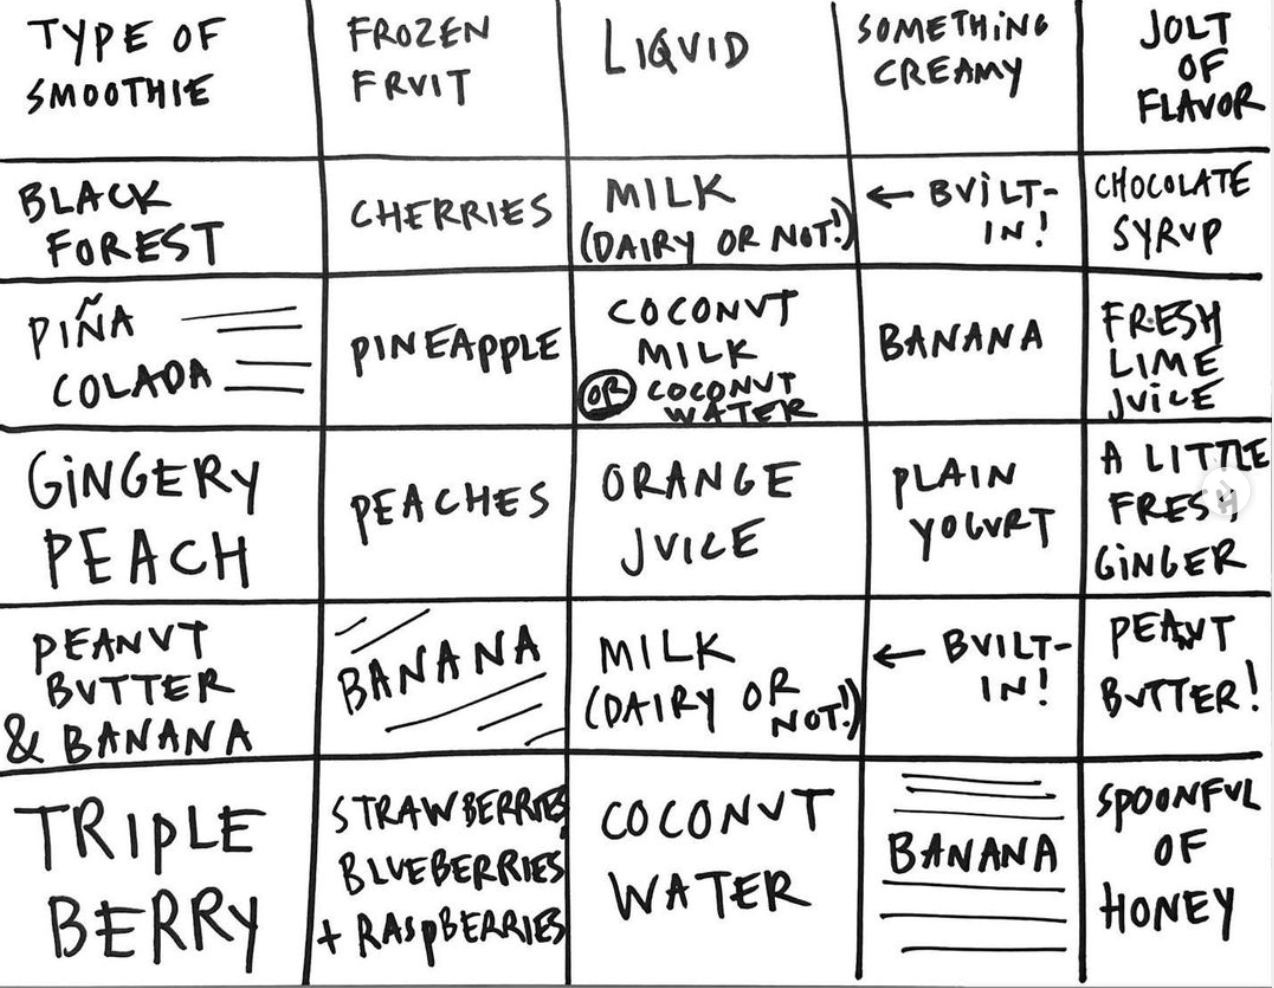 TYPE OF
SMOOTHIE
FROZEN
FRUIT
LIQUID
SOMETHING
CREAMY
JOLT
OF
FLAVOR
BLACK
FOREST
CHERRIES
MILK
(DAIRY OR NOT!)
← BUILT-
IN!
CHOCOLATE
SYRUP
PIÑA
COLADA
PINEAPPLE
COCONUT
MILK
OR COCONUT
WATER
BANANA
FRESH
LIME
JUICE
GINGERY
PEACH
PEACHES
ORANGE
JUICE
PLAIN
YOGURT
A LITTLE
FRESH
GINGER
PEANUT
BUTTER
& BANANA
BANANA
MILK
(DAIRY OR
NOT!)
← BUILT-
IN!
PEANUT
BUTTER!
TRIPLE
BERRY
STRAWBERRIES,
BLUEBERRIES
+ RASPBERRIES
COCONUT
WATER
BANANA
SPOONFUL
OF
HONEY